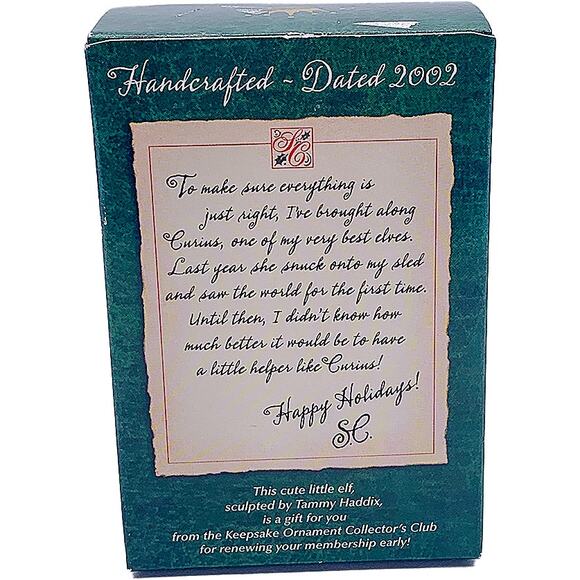 Handcrafted ~ Dated 2002
SC
To make sure everything is
just right, I've brought along
Curius, one of my very best elves.
Last year she snuck onto my sled
and saw the world for the first time.
Until then, I didn't know how
much better it would be to have
a little helper like Curius!
Happy Holidays!
S.C.
This cute little elf,
sculpted by Tammy Haddix,
is a gift for you
from the Keepsake Ornament Collector's Club
for renewing your membership early!